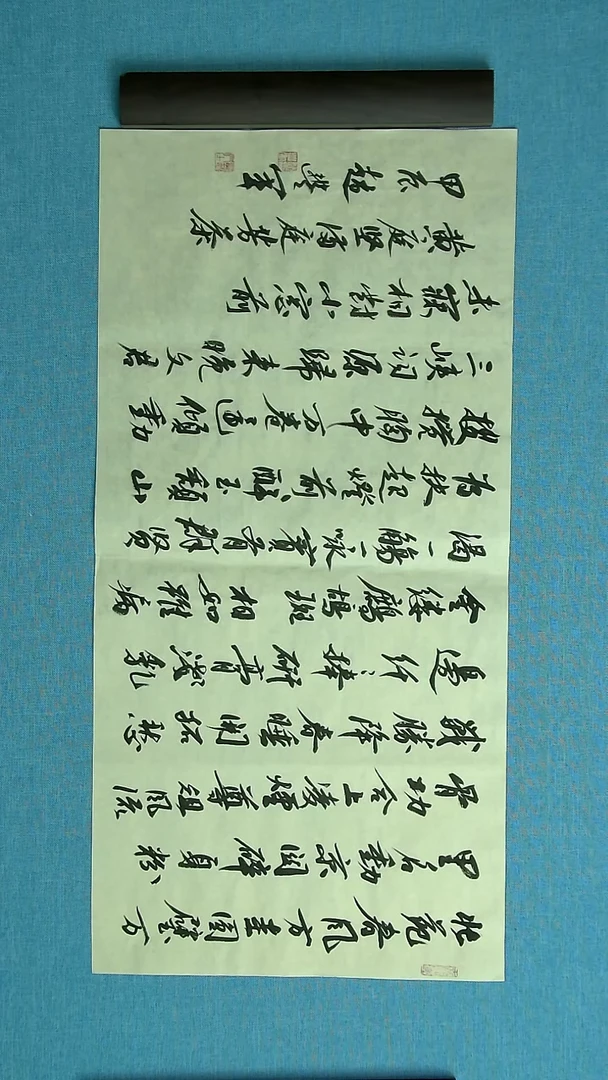 北苑春風方圭圓璧万
里名動京関碎身粉
骨功合上凌煙尊俎風流
戰勝降春睡開拓愁
邊纤纤捧研膏浅乳
金缕鷓鴣斑相如雖病
渴一觴一詠賓有群贤
为扶起燈前醉玉頹山
搜攪胸中万卷還傾動
三峡词源歸来晚文君
未寝相對小窓前
黄庭坚满庭芳茶
甲辰